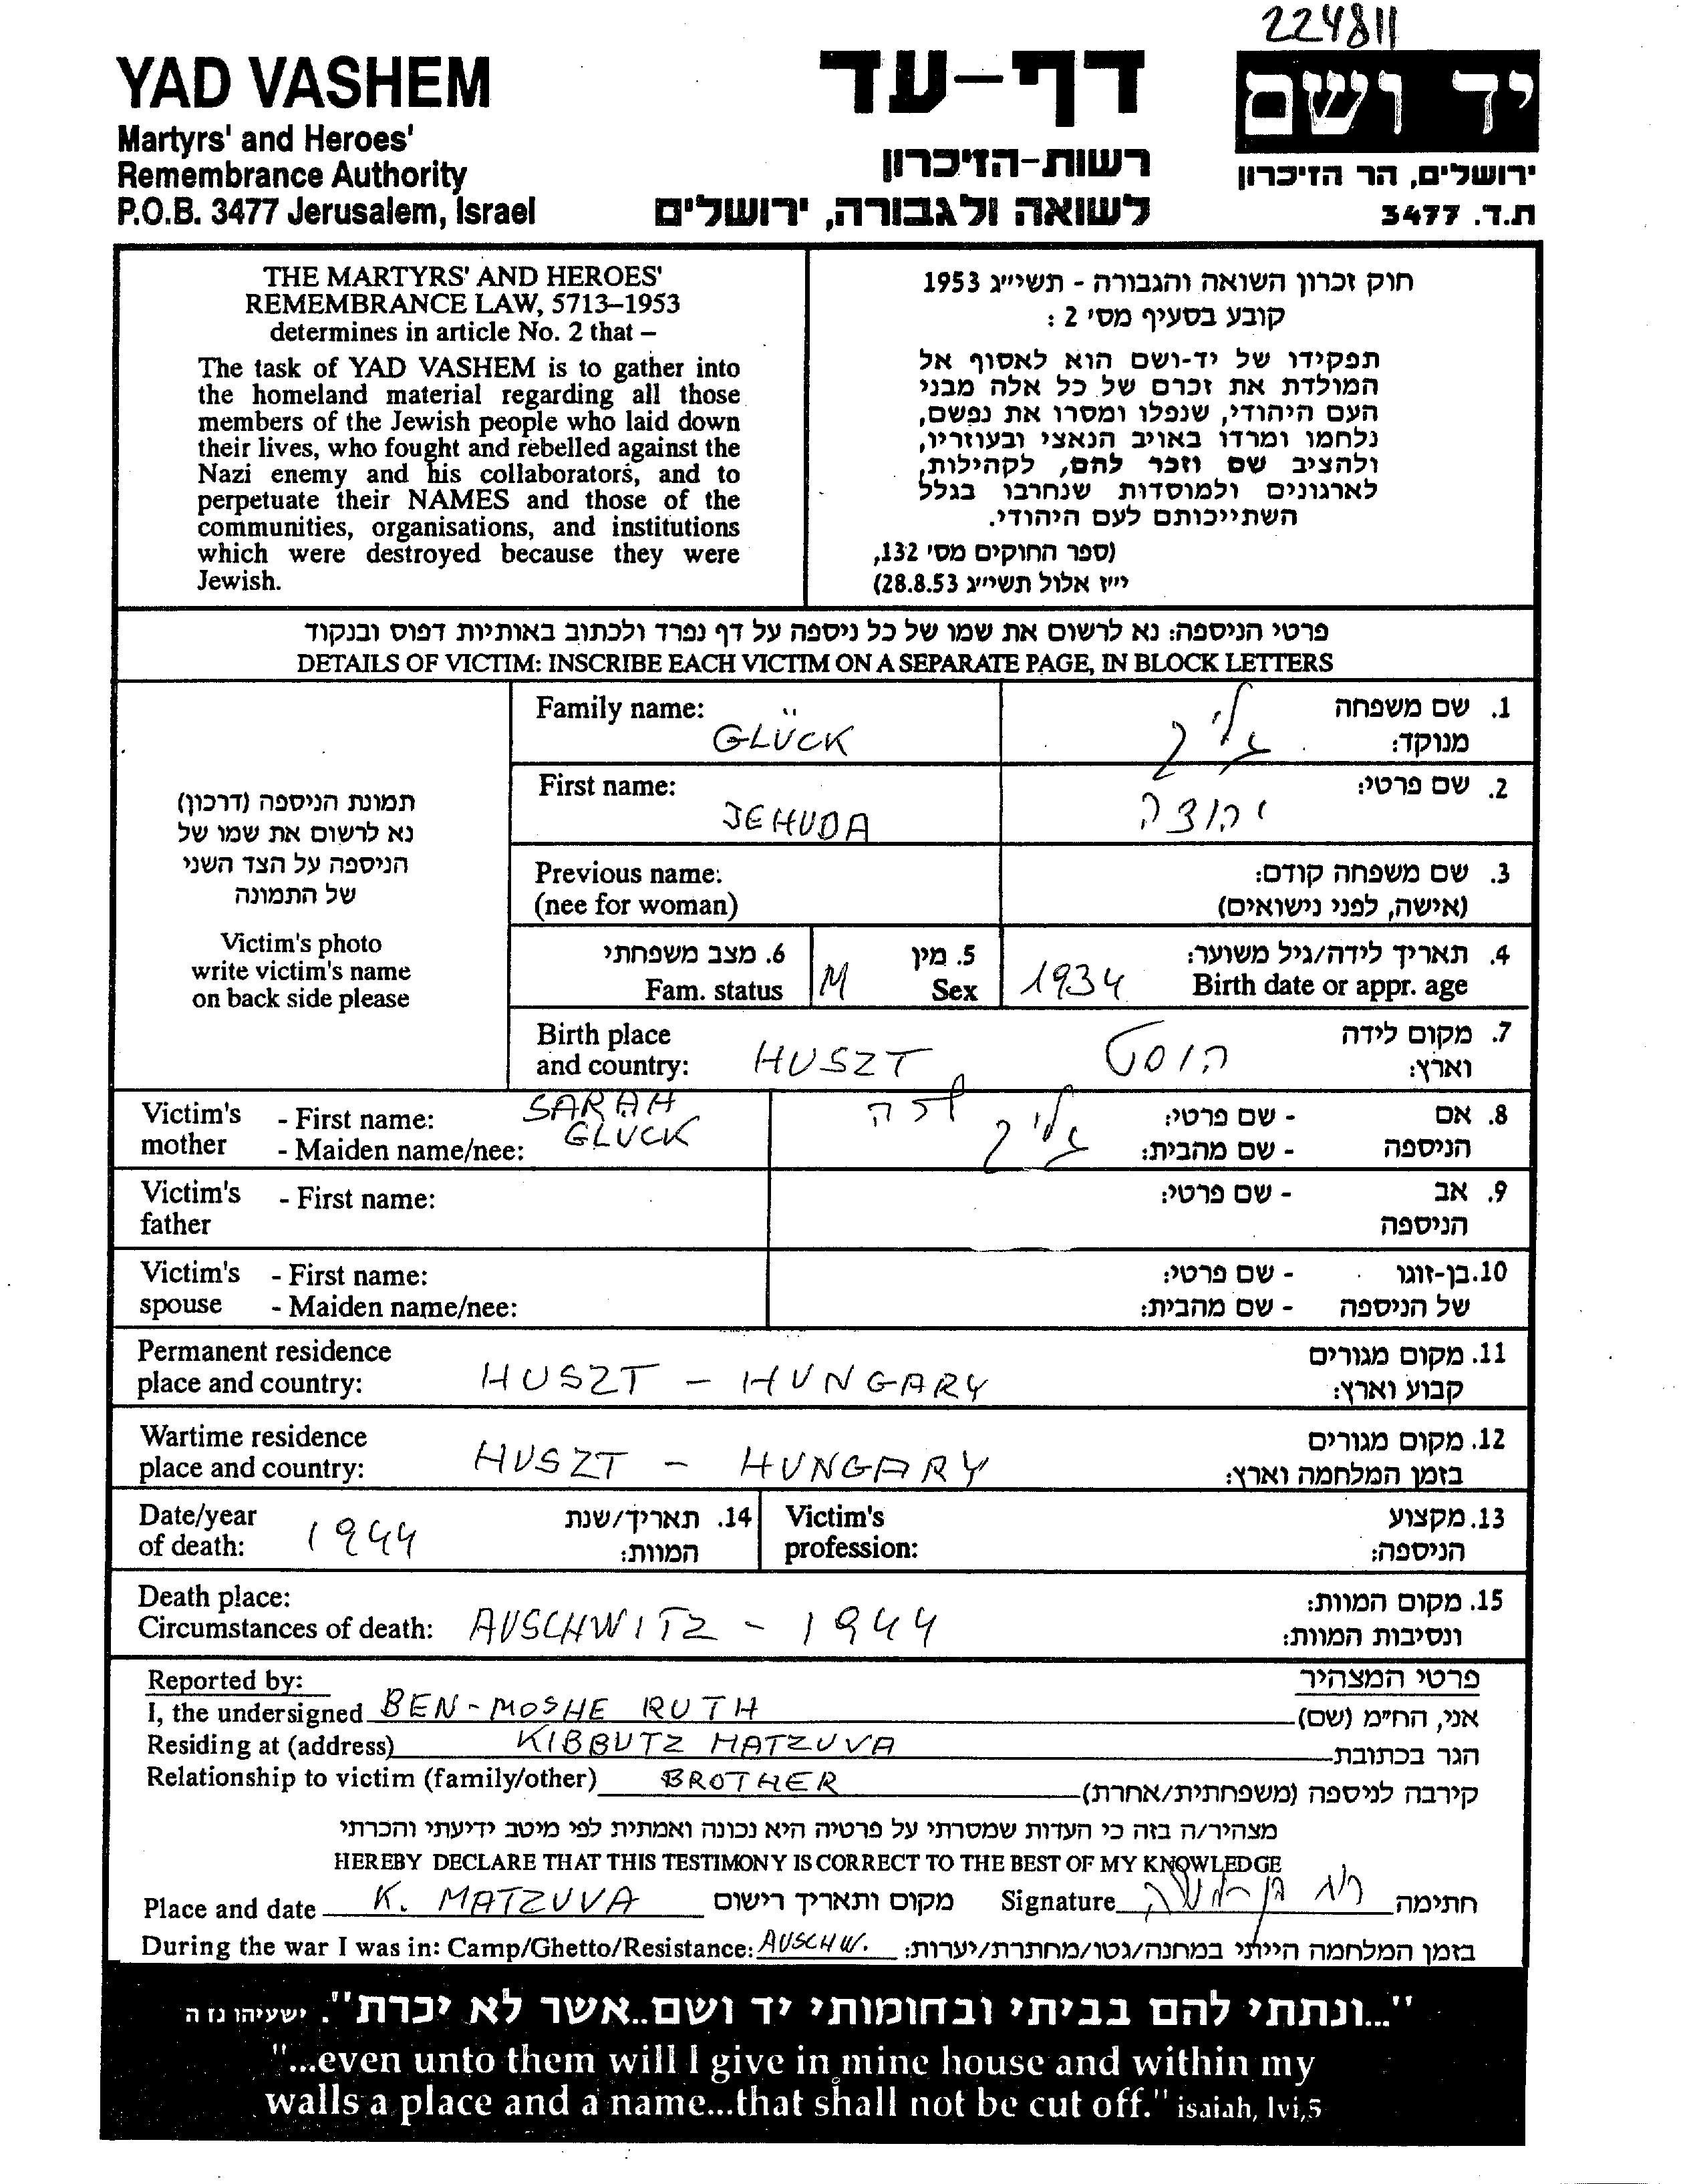 224811
YAD VASHEM
Martyrs' and Heroes'
Remembrance Authority
P.O.B. 3477 Jerusalem, Israel
דף-עד
רשות-הזיכרון
לשואה ולגבורה, ירושלים
יד ושם
ירושלים, הר הזיכרון
ת.ד. 3477
THE MARTYRS' AND HEROES'
REMEMBRANCE LAW, 5713–1953
determines in article No. 2 that –
The task of YAD VASHEM is to gather into
the homeland material regarding all those
members of the Jewish people who laid down
their lives, who fought and rebelled against the
Nazi enemy and his collaborators, and to
perpetuate their NAMES and those of the
communities, organisations, and institutions
which were destroyed because they were
Jewish.
חוק זכרון השואה והגבורה - תשי״ג 1953
קובע בסעיף מס׳ 2 :
תפקידו של יד-ושם הוא לאסוף אל
המולדת את זכרם של כל אלה מבני
העם היהודי, שנפלו ומסרו את נפשם,
נלחמו ומרדו באויב הנאצי ובעוזריו,
ולהציב שם וזכר להם, לקהילות,
לארגונים ולמוסדות שנחרבו בגלל
השתייכותם לעם היהודי.
(ספר החוקים מס׳ 132,
י״ז אלול תשי״ג 28.8.53)
פרטי הניספה: נא לרשום את שמו של כל ניספה על דף נפרד ולכתוב באותיות דפוס ובנקוד
DETAILS OF VICTIM: INSCRIBE EACH VICTIM ON A SEPARATE PAGE, IN BLOCK LETTERS
תמונת הניספה (דרכון)
נא לרשום את שמו של
הניספה על הצד השני
של התמונה
Victim's photo
write victim's name
on back side please
Family name: GLÜCK
גליק
1. שם משפחה
מנוקד:
First name: JEHUDA
יהודה
2. שם פרטי:
Previous name:
(nee for woman)
3. שם משפחה קודם:
(אישה, לפני נישואים)
6. מצב משפחתי
Fam. status
M
5. מין
Sex
1934
4. תאריך לידה/גיל משוער:
Birth date or appr. age
Birth place
and country: HUSZT
הוסט
7. מקום לידה
וארץ:
Victim's mother
- First name: SARAH
- Maiden name/nee: GLUCK
שרה
גליק
- שם פרטי:
- שם מהבית:
8. אם
הניספה
Victim's father
- First name:
- שם פרטי:
9. אב
הניספה
Victim's spouse
- First name:
- Maiden name/nee:
- שם פרטי:
- שם מהבית:
10. בן-זוגו
של הניספה
Permanent residence
place and country: HUSZT - HUNGARY
11. מקום מגורים
קבוע וארץ:
Wartime residence
place and country: HUSZT - HUNGARY
12. מקום מגורים
בזמן המלחמה וארץ:
Date/year
of death: 1944
14. תאריך/שנת
המוות:
Victim's
profession:
13. מקצוע
הניספה:
Death place:
Circumstances of death: AUSCHWITZ - 1944
15. מקום המוות:
ונסיבות המוות:
Reported by:
פרטי המצהיר
I, the undersigned BEN-MOSHE RUTH אני, הח״מ (שם)
Residing at (address) KIBBUTZ MATZUVA הגר בכתובת
Relationship to victim (family/other) BROTHER קירבה לניספה (משפחתית/אחרת)
מצהיר/ה בזה כי העדות שמסרתי על פרטיה היא נכונה ואמתית לפי מיטב ידיעתי והכרתי
HEREBY DECLARE THAT THIS TESTIMONY IS CORRECT TO THE BEST OF MY KNOWLEDGE
Place and date K. MATZUVA מקום ותאריך רישום Signature רות בן-משה חתימה
During the war I was in: Camp/Ghetto/Resistance: AUSCHW. בזמן המלחמה הייתי במחנה/גטו/מחתרת/יערות:
"...ונתתי להם בביתי ובחומותי יד ושם..אשר לא יכרת". ישעיהו נז ה
"...even unto them will I give in mine house and within my
walls a place and a name...that shall not be cut off." isaiah, lvi,5